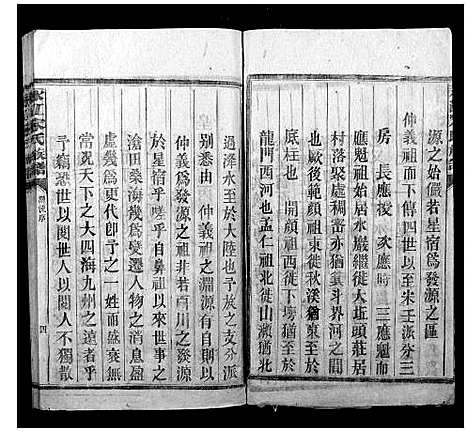 源之始儼若星宿為發源之區
仲義祖而下傳四世至宋壬派分三
房 長應後 次應時 三應魁而
應魁祖始居水巖繼徙大坵頭莊居
村落聚處稠密亦猶龍門界河之間
也厥後範顏祖東徙秋溪猶東至於
底柱也 開顏祖西徙下塝猶至於
龍門西河也孟仁祖北徙山瀨猶北
過洚水至於大陸也予故于支分派
別悉由 仲義祖之淵源有自則以
仲義為發源之祖非若百川之發源
於星宿乎嗟乎自鼻祖以來世事之
滄田桑海幾為變遷人物之消息盈
虛幾為更代即予之一姓而盛衰無
常況天下之大四海九州之遠者乎
予竊恐世以閱世人以閱人不獨散
源流序
四